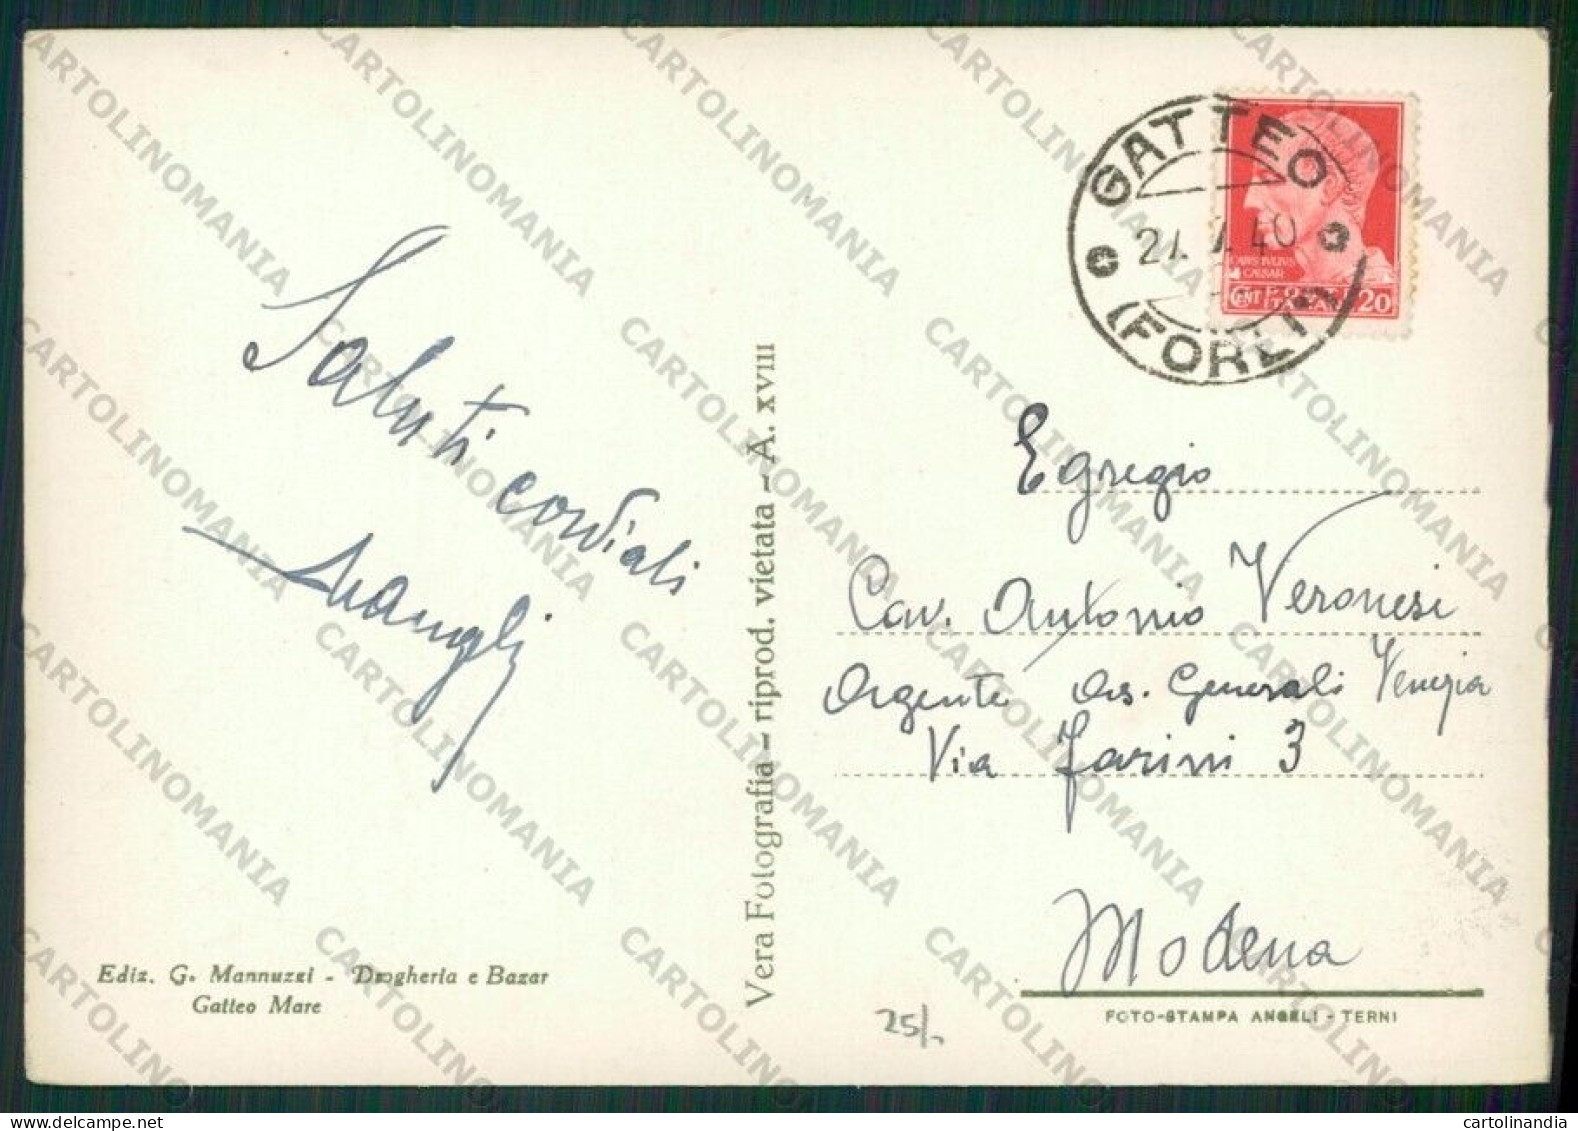 Saluti cordiali
Ediz. G. Mannuzzi - Drogheria e Bazar
Gatteo Mare
Vera Fotografia - riprod. vietata - A. XVIII
GATTEO
(FORLI')
CENT 20
Egregio
Cav. Antonio Veronesi
Agente Ass. Generali Venezia
Via Farini 3
Modena
FOTO-STAMPA ANGELI - TERNI
25/-
CARTOLINOMANIA
cartolinandia